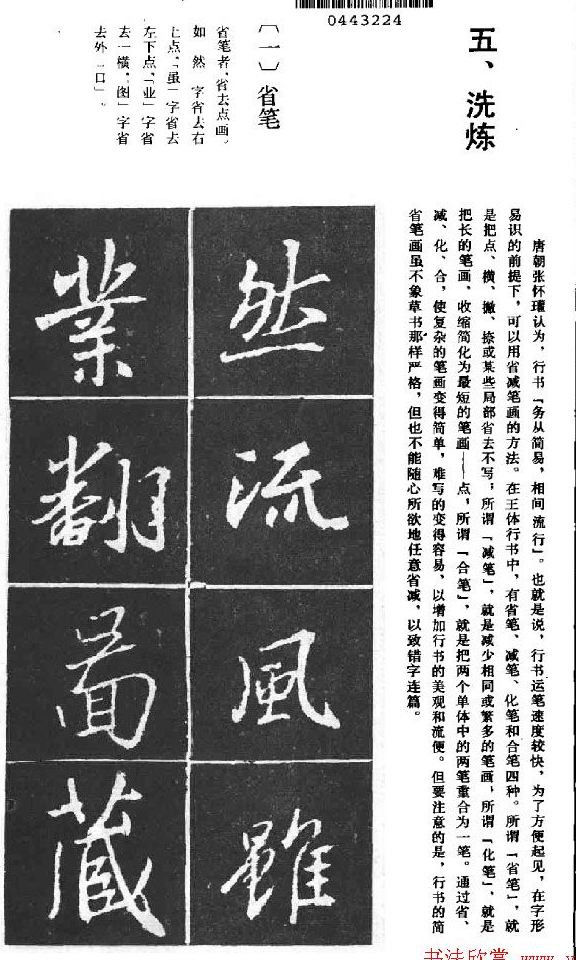 0443224
五、洗炼
唐朝张怀瓘认为，行书『务从简易，相间流行』。也就是说，行书运笔速度较快，为了方便起见，在字形
易识的前提下，可以用省减笔画的方法。在王体行书中，有省笔、减笔、化笔和合笔四种。所谓『省笔』，就
是把点、横、撇、捺或某些局部省去不写；所谓『减笔』，就是减少相同或繁多的笔画；所谓『化笔』，就是
把长的笔画，收缩简化为最短的笔画——点，所谓『合笔』，就是把两个单体中的两笔重合为一笔。通过省、
减、化、合，使复杂的笔画变得简单，难写的变得容易，以增加行书的美观和流便。但要注意的是，行书的简
省笔画虽不象草书那样严格，但也不能随心所欲地任意省减，以致错字连篇。
〔一〕省笔
省笔者，省去点画。
如 然 字省去右
上点，『虽』字省去
左下点，『业』字省
去一横，『图』字省
去外『口』。
然
流
風
雖
業
翻
啚
蔵
书法欣赏